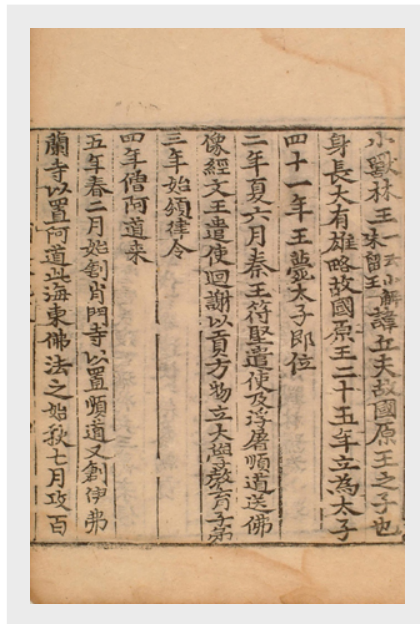 小獸林王一云小解朱留王諱丘夫故國原王之子也
身長大有雄略故國原王二十五年立為太子
四十一年王薨太子即位
二年夏六月秦王符堅遣使及浮屠順道送佛
像經文王遣使迴謝以貢方物立大學教育子弟
三年始頒律令
四年僧阿道來
五年春二月始創肖門寺以置順道又創伊弗
蘭寺以置阿道此海東佛法之始秋七月攻百